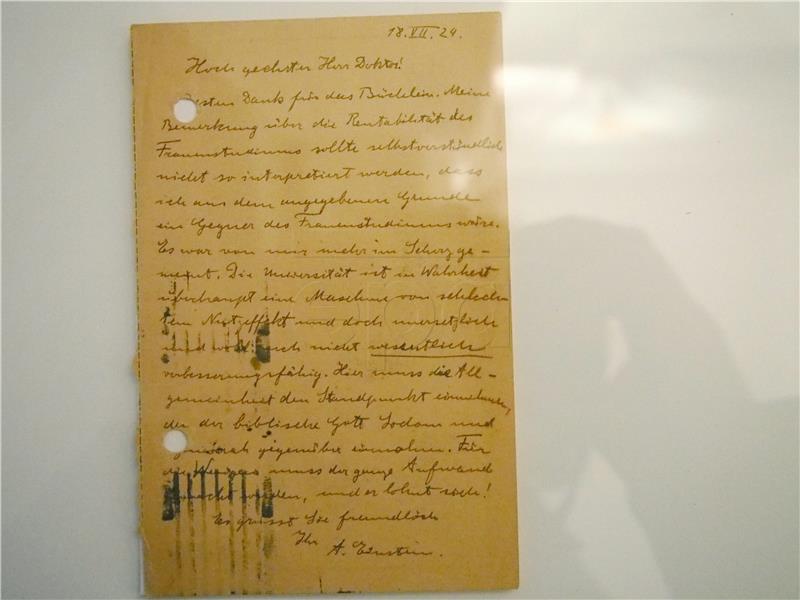 18.VII.24.
Hoch geehrter Herr Doktor!
Besten Dank für das Büchlein. Meine
Bemerkung über die Rentabilität des
Frauenstudiums sollte selbstverständlich
nicht so interpretiert werden, dass
ich aus dem angegebenen Grunde
ein Gegner des Frauenstudiums wäre.
Es war von mir mehr im Scherz ge-
meint. Die Universität ist in Wahrheit
überhaupt eine Maschine von schlech-
tem Nutzeffekt und doch unersetzlich
und wohl auch nicht wesentlich
verbesserungsfähig. Hier muss die All-
gemeinheit den Standpunkt einnehmen,
den der biblische Gott Sodom und
Gomorah gegenüber einnahm. Für
die Wenigen muss der ganze Aufwand
gemacht werden, und er lohnt sich!
Es grüsst Sie freundlich
Ihr
A. Einstein.